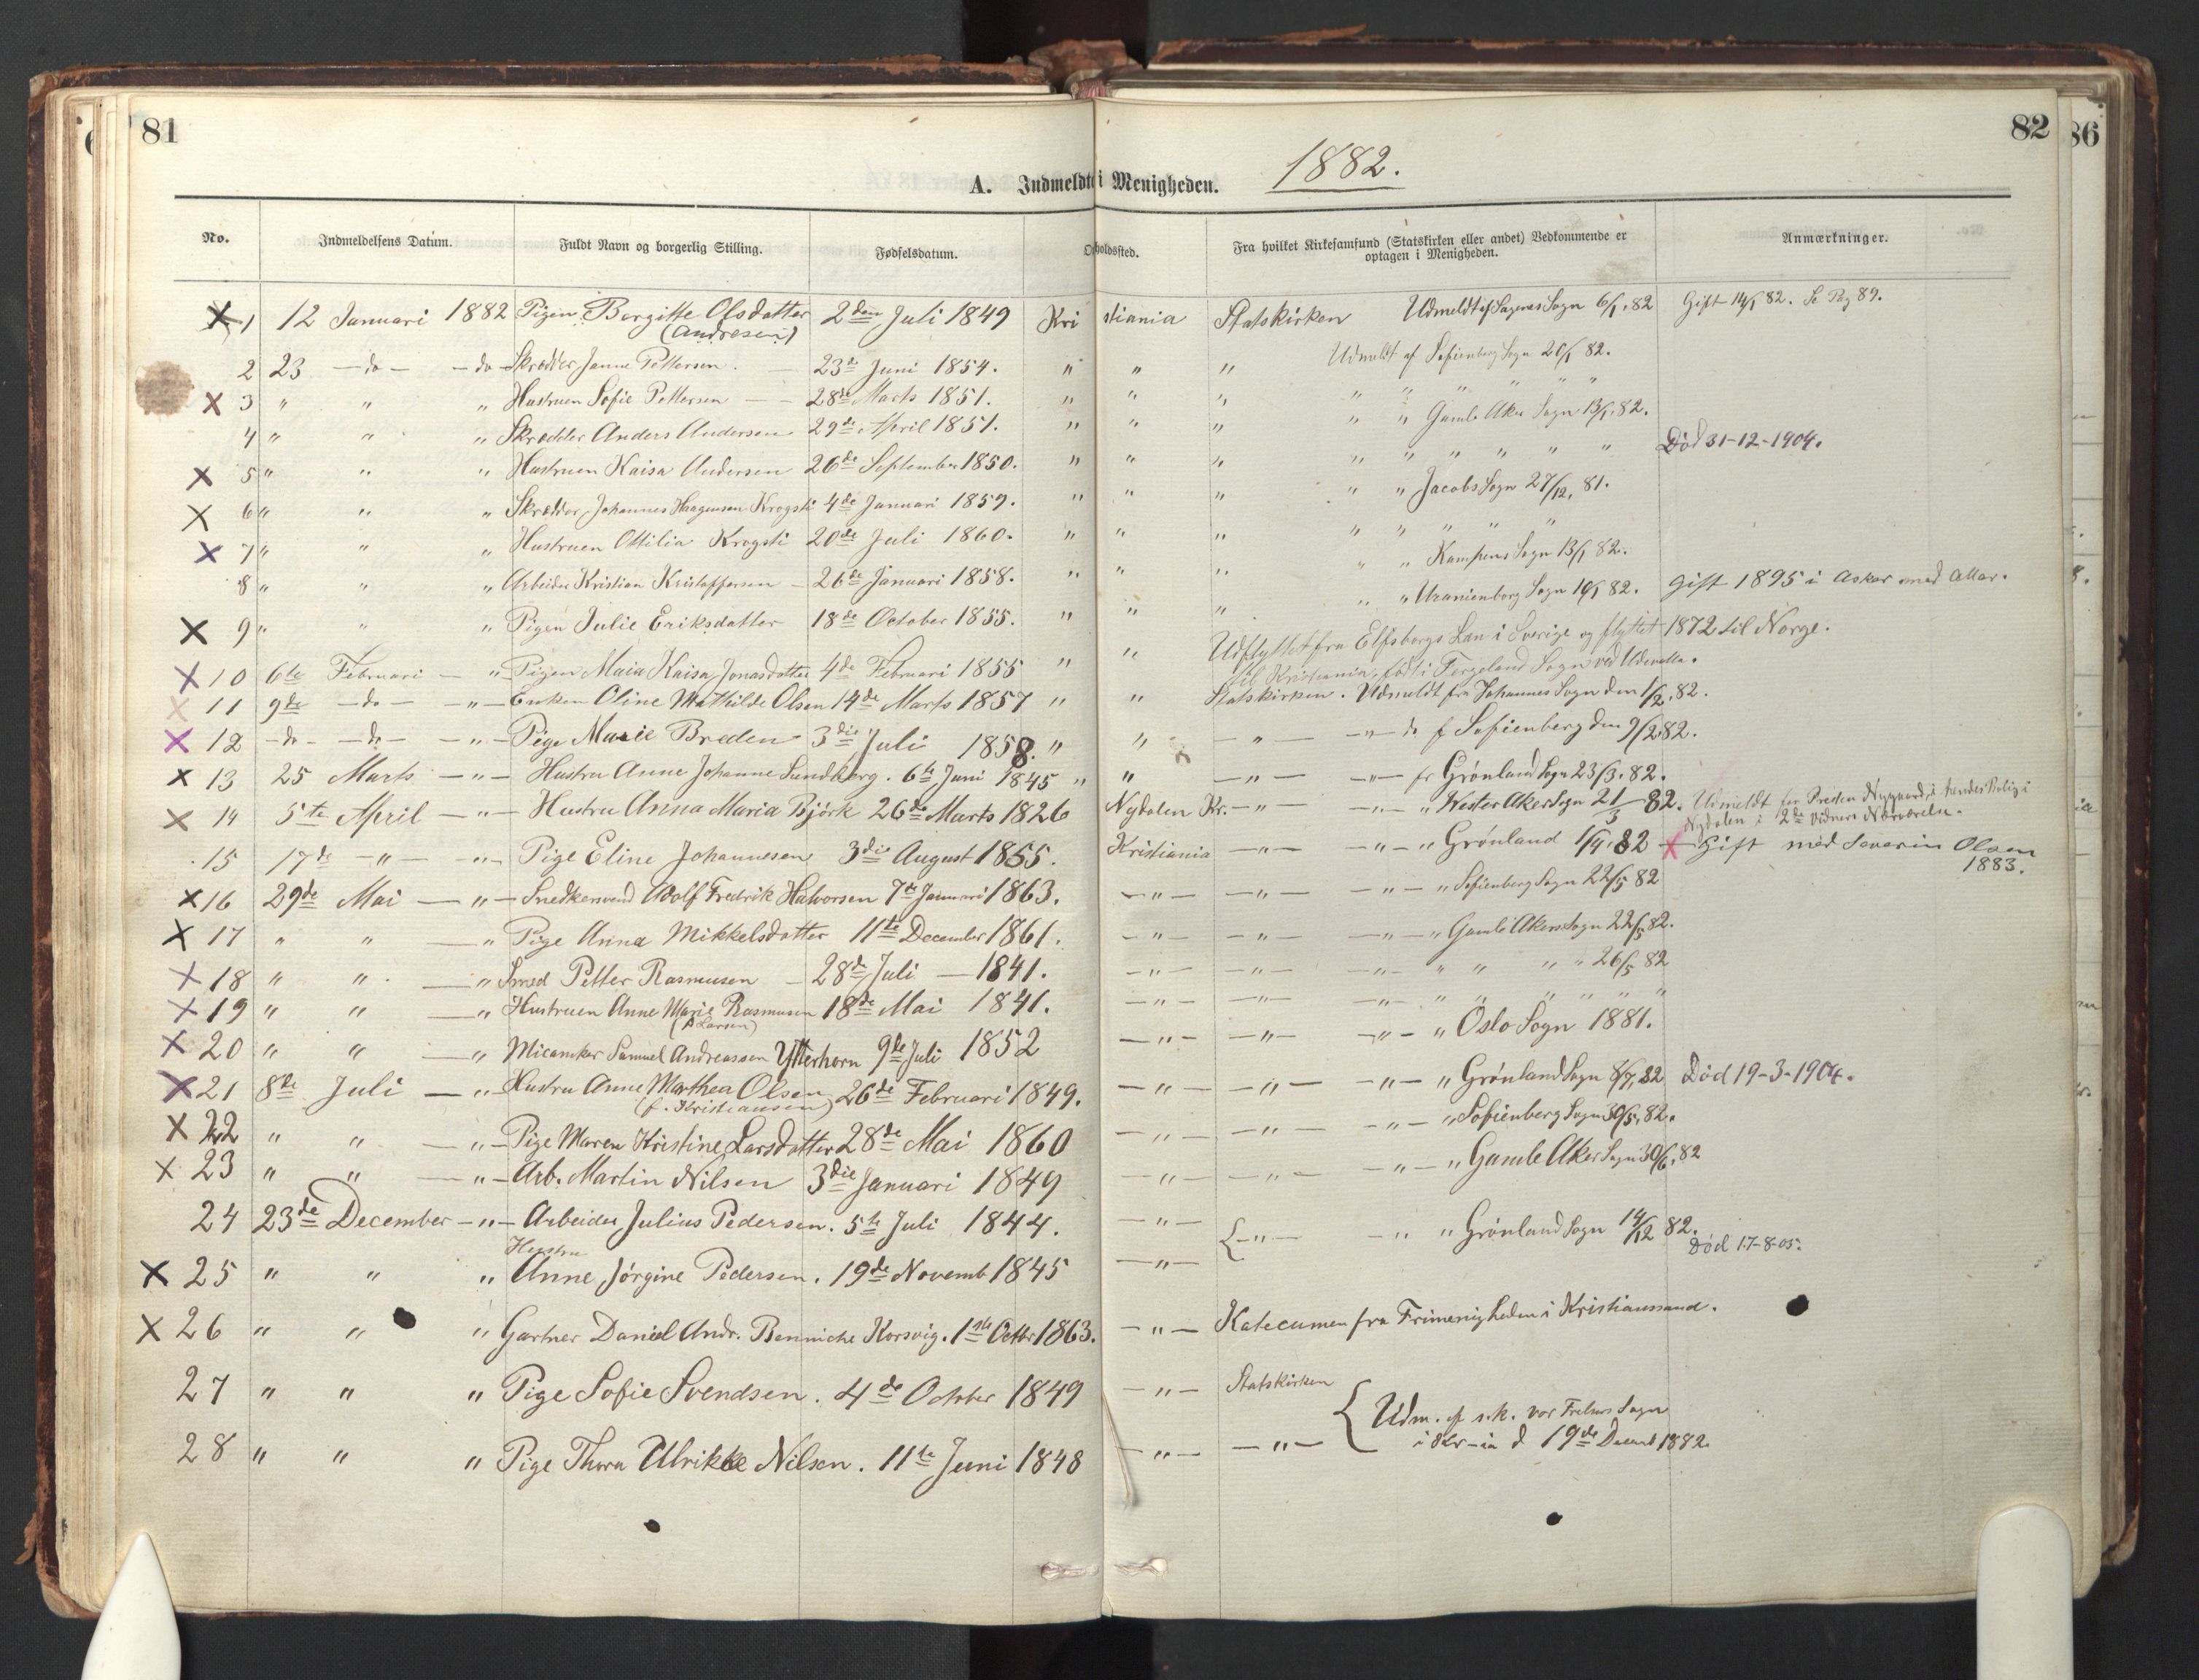 81
82
86
1882.
A. Indmeldte i Menigheden.
No. Indmeldelsens Datum. Fuldt Navn og borgerlig Stilling. Fødselsdatum. Opholdssted. Fra hvilket Kirkesamfund (Statskirken eller andet) Vedkommende er optagen i Menigheden. Anmærkninger.
X 1 12 Januari 1882 Pigen Borgitte Olsdatter (Andresen) 2den Juli 1849 Kristiania Statskirken Udmeldt af Sagenes Sogn 6/1, 82 Gift 14/1 82. Se Pag 89.
2 23 — do — — do — Skrædder Janne Pettersen. 23de Juni 1854. " " " Udmeldt af Sofienberg Sogn 20/1 82.
X 3 " " " Hustruen Sofie Pettersen — — 28de Marts 1851. " " " " " " " "
4 " " " Skrædder Anders Andersen 29de April 1851. " " " " " Gamle Aker Sogn 13/1, 82.
X 5 " " " Hustruen Kaisa Andersen 26de September 1850. " " " " " " " " Død 31-12-1904.
X 6 " " " Skrædder Johannes Haagensen Krogsti 4de Januari 1859. " " " " " Jacobs Sogn 27/12, 81.
X 7 " " " Hustruen Ottilia Krogsti 20de Juli 1860. " " " " " " " "
8 " " " Arbeider Kristian Kristoffersen — 26de Januari 1858. " " " " " Kampens Sogn 13/1 82.
X 9 " " " Pigen Julie Eriksdatter 18de October 1855. " " " " " Uranienborg Sogn 19/1 82. Gift 1895 i Asker med Attar.
X 10 6te Februari — " Pigen Maia Kaisa Jonasdatter 4de Februari 1855 " " Udflyttet fra Elfsborgs Lan i Sverige og flyttet 1872 til Norge.
til Kristiania, født i Sogn ved Udevalla.
X 11 9de — do — — " — Enken Oline Mathilde Olsen 14de Marts 1857 " " Statskirken. Udmeldt fra Johannes Sogn den 1/2, 82.
X 12 — do — — do — — " — Pige Marie Breden 3die Juli 1858. " " — " — — " — do f Sofienberg den 9/2 82.
X 13 25 Marts — " — Hustru Anne Johanne Sundberg. 6te Juni 1845 " " — " — — " — fr Grønland Sogn 23/3, 82.
X 14 5te April — " — Hustru Anna Maria Björk 26de Marts 1826 Nydalen Kr. — " — — " — " Vester Aker Sogn 21/3 82. Udmeldt for Presten Nygaard, i hendes Bolig i
Nydalen i 2de Vidners Nærværelse.
15 17de — " — — " — Pige Eline Johannesen 3die August 1855. Kristiania — " — — " — " Grønland 1/4 82 X Gift med Severin Olsen
1883.
X 16 29de Mai — " — Snedkersvend Adolf Fredrik Halvorsen 7de Januari 1863. — " — — " — — " — " Sofienberg Sogn 22/5 82
X 17 " " — " Pige Anna Mikkelsdatter 11te December 1861. — " — — " — — " — " Gamle Akers Sogn 22/5 82.
X 18 " " — " Smed Petter Rasmusen — 28de Juli — 1841. — " — — " — — " — " " " " 26/5 82
X 19 " " — " Hustruen Anne Marie Rasmusen (f Larsen) 18de Mai 1841. — " — — " — — " — " " " " " "
X 20 " " — " Micaniker Samuel Andreassen Ytterhorn 9de Juli 1852 — " — — " — — " — " Oslo Sogn 1881.
X 21 8de Juli — " — Hustru Anne Marthea Olsen (f. Kristiansen) 26de Februari 1849. — " — — " — — " — " Grønland Sogn 8/7, 82 Død 19-3-1904.
X 22 " " — " — Pige Maren Kristine Larsdatter 28de Mai 1860 — " — — " — — " — " Sofienberg Sogn 30/5, 82.
X 23 " " — " — Arb. Martin Nilsen 3die Januari 1849 — " — — " — — " — " Gamle Aker Sogn 30/6, 82
24 23de December — " — Arbeider Julius Pedersen. 5te Juli 1844. — " — { — " — — " " Grønland Sogn 14/12 82.
X 25 " " " Hustru Anne Jørgine Pedersen. 19de Novemb 1845 — " — Død 17-8-05.
X 26 " " " Gartner Daniel Andr. Benniche Korsvig. 1ste Octbr 1863. — " — Katecumen fra Frimenigheden i Kristianssand.
27 " " " Pige Sofie Svendsen. 4de October 1849 — " — Statskirken { Udm. af s.k. vor Frelsers Sogn
28 " " " Pige Thora Ulrikke Nilsen. 11te Juni 1848 — " — — " — i Kr-ia d 19de Decemb 1882.